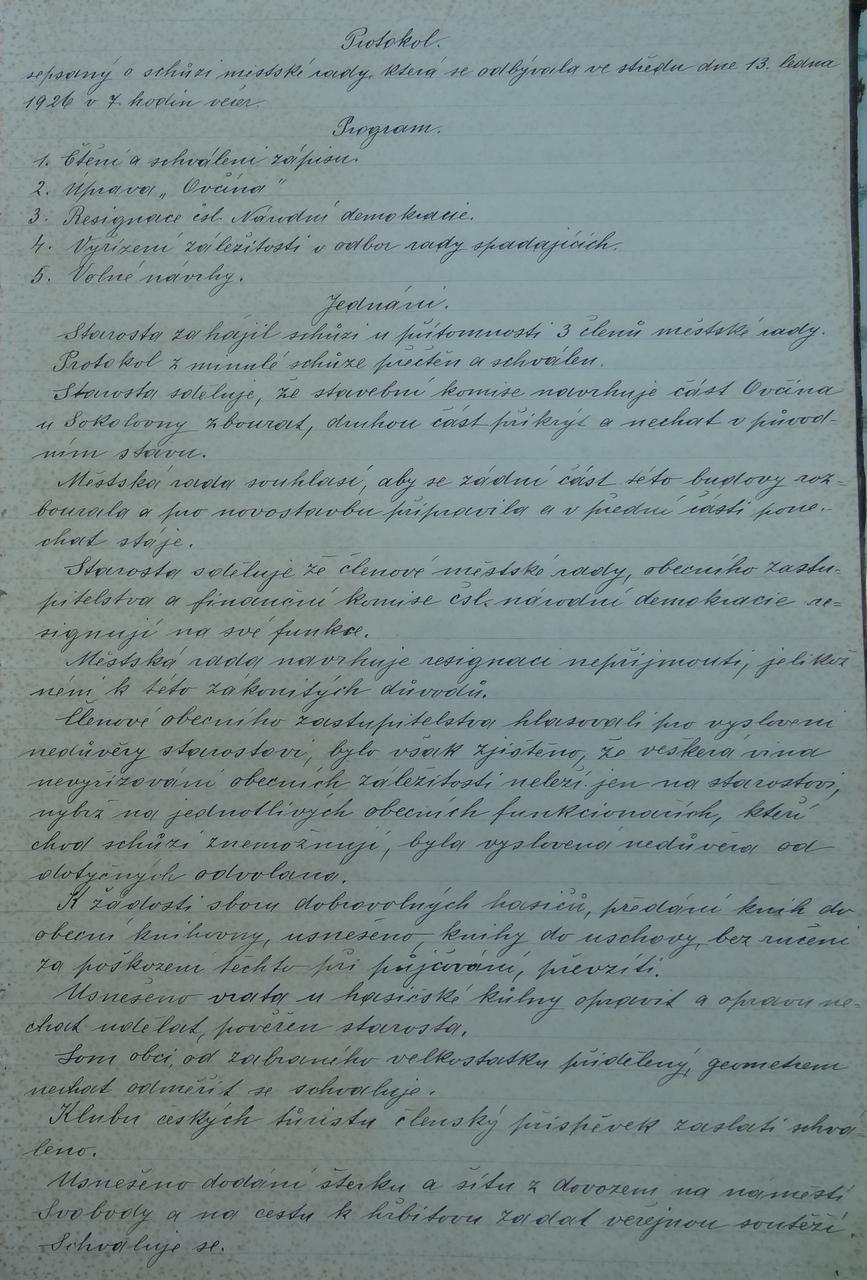 Protokol.
sepsaný o schůzi městské rady, která se odbývala ve středu dne 13. ledna
1926 v 7. hodin večer.
Program.
1. Čtení a schválení zápisu.
2. Úprava „Ovčína"
3. Resignace čsl. Národní demokracie.
4. Vyřízení záležitostí v odbor rady spadajících.
5. Volné návrhy.
Jednání.
Starosta zahájil schůzi u přítomnosti 3 členů městské rady.
Protokol z minulé schůze přečten a schválen.
Starosta sděluje, že stavební komise navrhuje část Ovčína
u Sokolovny zbourat, druhou část přikrýt a nechat v původ-
ním stavu.
Městská rada souhlasí, aby se zádní část této budovy roz-
bourala a pro novostavbu připravila a v přední části pone-
chat stáje.
Starosta sděluje že členové městské rady, obecního zastu-
pitelstva a finanční komise čsl. národní demokracie re-
signují na své funkce.
Městská rada navrhuje resignaci nepřijmouti, jelikož
není k této zákonitých důvodů.
Členové obecního zastupitelstva hlasovali pro vyslovení
nedůvěry starostovi, bylo však zjištěno, že veškerá vina
nevyřizování obecních záležitostí neleží jen na starostovi,
nýbrž na jednotlivých obecních funkcionářích, kteří
chod schůzí znemožnují, byla vyslovená nedůvěra od
dotyčných odvolána.
K žádosti sboru dobrovolných hasičů, předání knih do
obecní knihovny, usneseno, knihy do uschovy, bez ručení
za poškození těchto při půjčování, převzíti.
Usnešeno vrata u hasičské kůlny opravit a opravu ne-
chat udělat, pověřen starosta.
Lom obci, od zabraného velkostatku přidělený, geometrem
nechat odměřit se schvaluje.
Klubu českých túristu členský příspěvek zaslati schvá
leno.
Usnešeno dodání štěrku a šítu z dovozem na náměstí
Svobody a na cestu k hřbitovu zadat veřejnou soutěží
Schvaluje se.